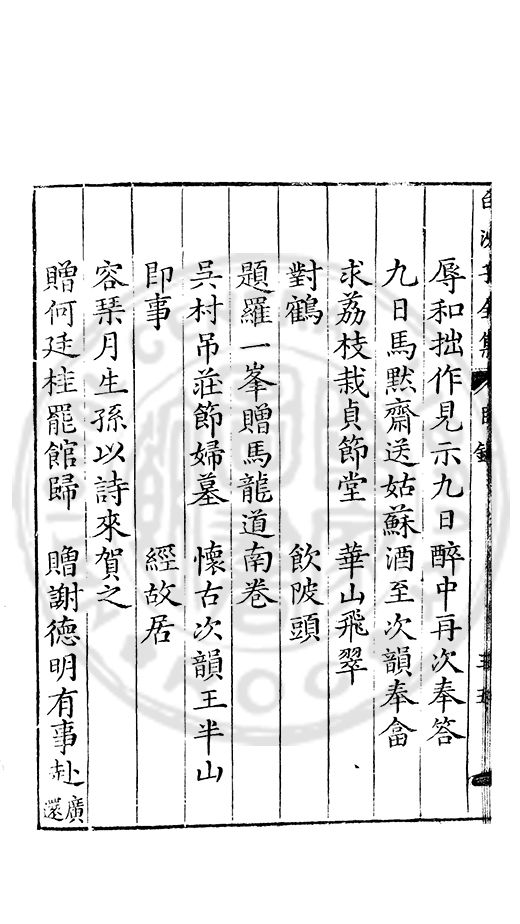 白沙子全集 目錄
辱和拙作見示九日醉中再次奉答
九日馬默齋送姑蘇酒至次韻奉畣
求荔枝栽貞節堂 華山飛翠
對鶴 飲陂頭
題羅一峯贈馬龍道南卷
吳村吊莊節婦墓 懷古次韻王半山
即事 經故居
容琴月生孫以詩來賀之
贈何廷桂罷館歸 贈謝德明有事赴廣還